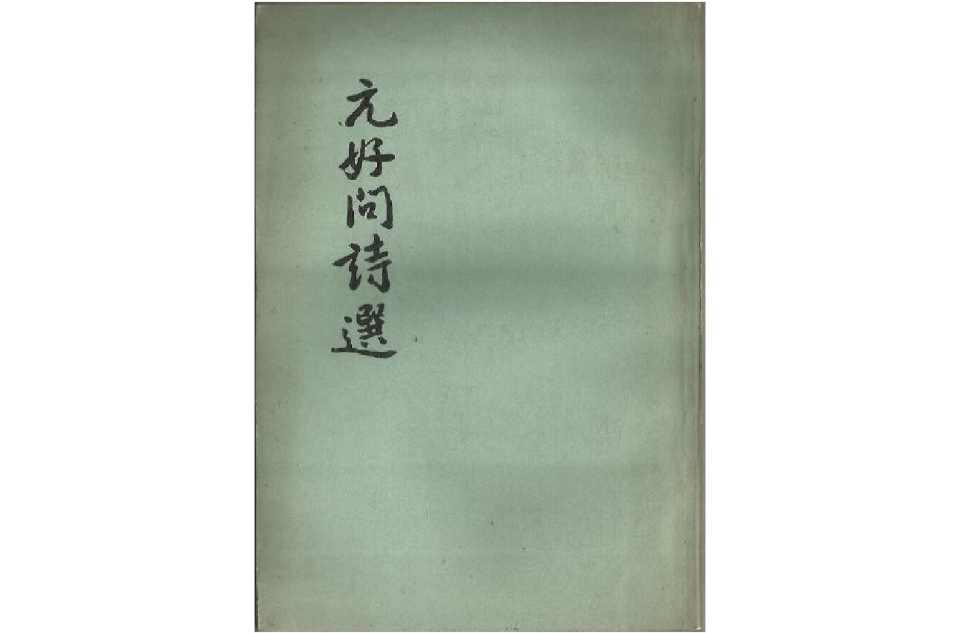 元好问詩選